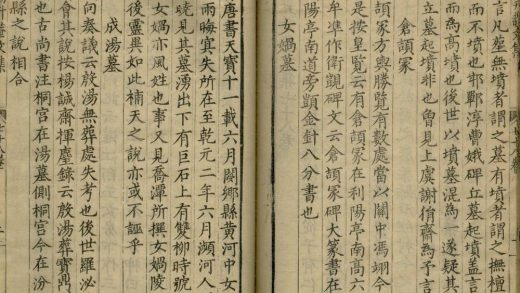 言凡塋無墳者謂之墓有墳者謂之
而不墳也邯鄲淳曹娥碑丘墓起墳盖言
而為高墳也後世以墳墓混為一遂疑其
立墓起墳非也曾見上虞謝脩齋為予言
倉頡冢
頡冢方輿勝覽有數處當以關中馮翊今
是按皇覽云有倉頡冢在利陽亭南高六
牟準作衛覬碑文云倉頡冢碑大篆書在
陽亭南道旁顗金針八分書也
女媧墓
唐書天寶十一載六月閿鄉縣黃河中女
雨晦冥失所在至乾元二年六月瀕河人
曉見其墓湧出下有巨石上有雙柳時號
女媧亦風姓也事又見喬潭所撰女媧陵
後靈異如此補天之說亦或不誣乎
成湯墓
向奏議云殷湯無葬處失考也後世羅泌
會其說按楊誠齋揮麈錄云殷湯葬寶鼎
也古尚書注桐宮在湯墓側桐宮今在汾
縣之說相合